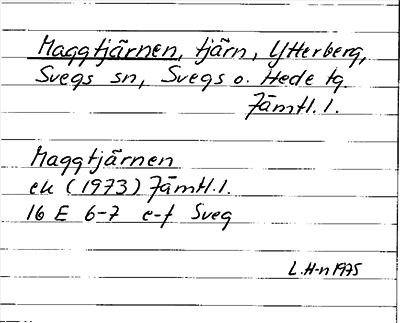 Maggtjärnen, tjärn, Ytterberg,
Svegs sn, Svegs o. Hede tg
Jämtl. l.
Maggtjärnen
ek (1973) Jämtl. l.
16 E 6-7 e-f Sveg
L. H-n 1975